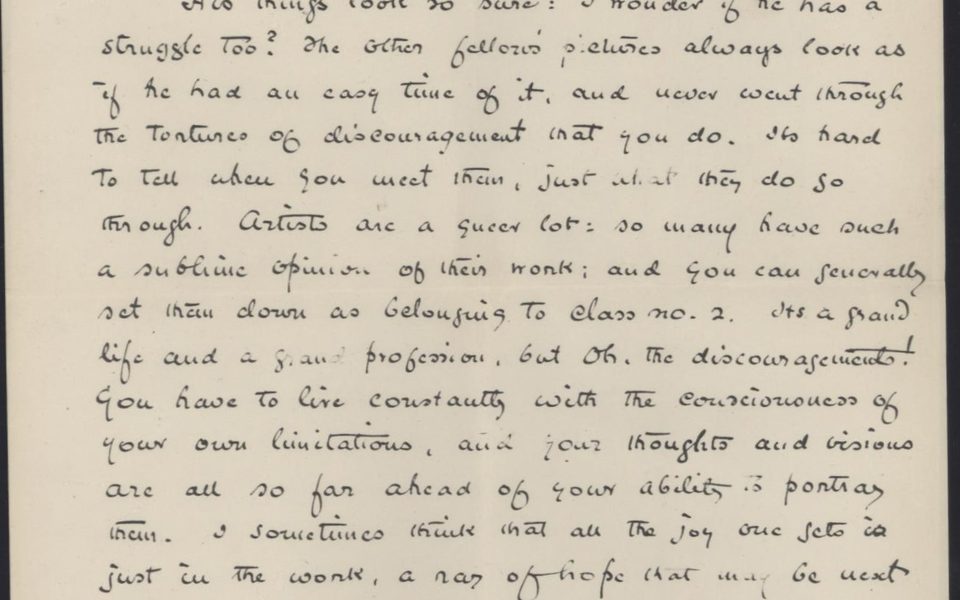 His things look so sure: I wonder if he has a
struggle too? The other fellow's pictures always look as
if he had an easy time of it, and never went through
the tortures of discouragement that you do. Its hard
to tell when you meet them, just what they do go
through. Artists are a queer lot: so many have such
a sublime opinion of their work; and you can generally
set them down as belonging to class no. 2. Its a grand
life and a grand profession, but Oh, the discouragements!
You have to live constantly with the consciousness of
your own limitations, and your thoughts and visions
are all so far ahead of your ability to portray
them. I sometimes think that all the joy one gets is
just in the work, a ray of hope that may be next